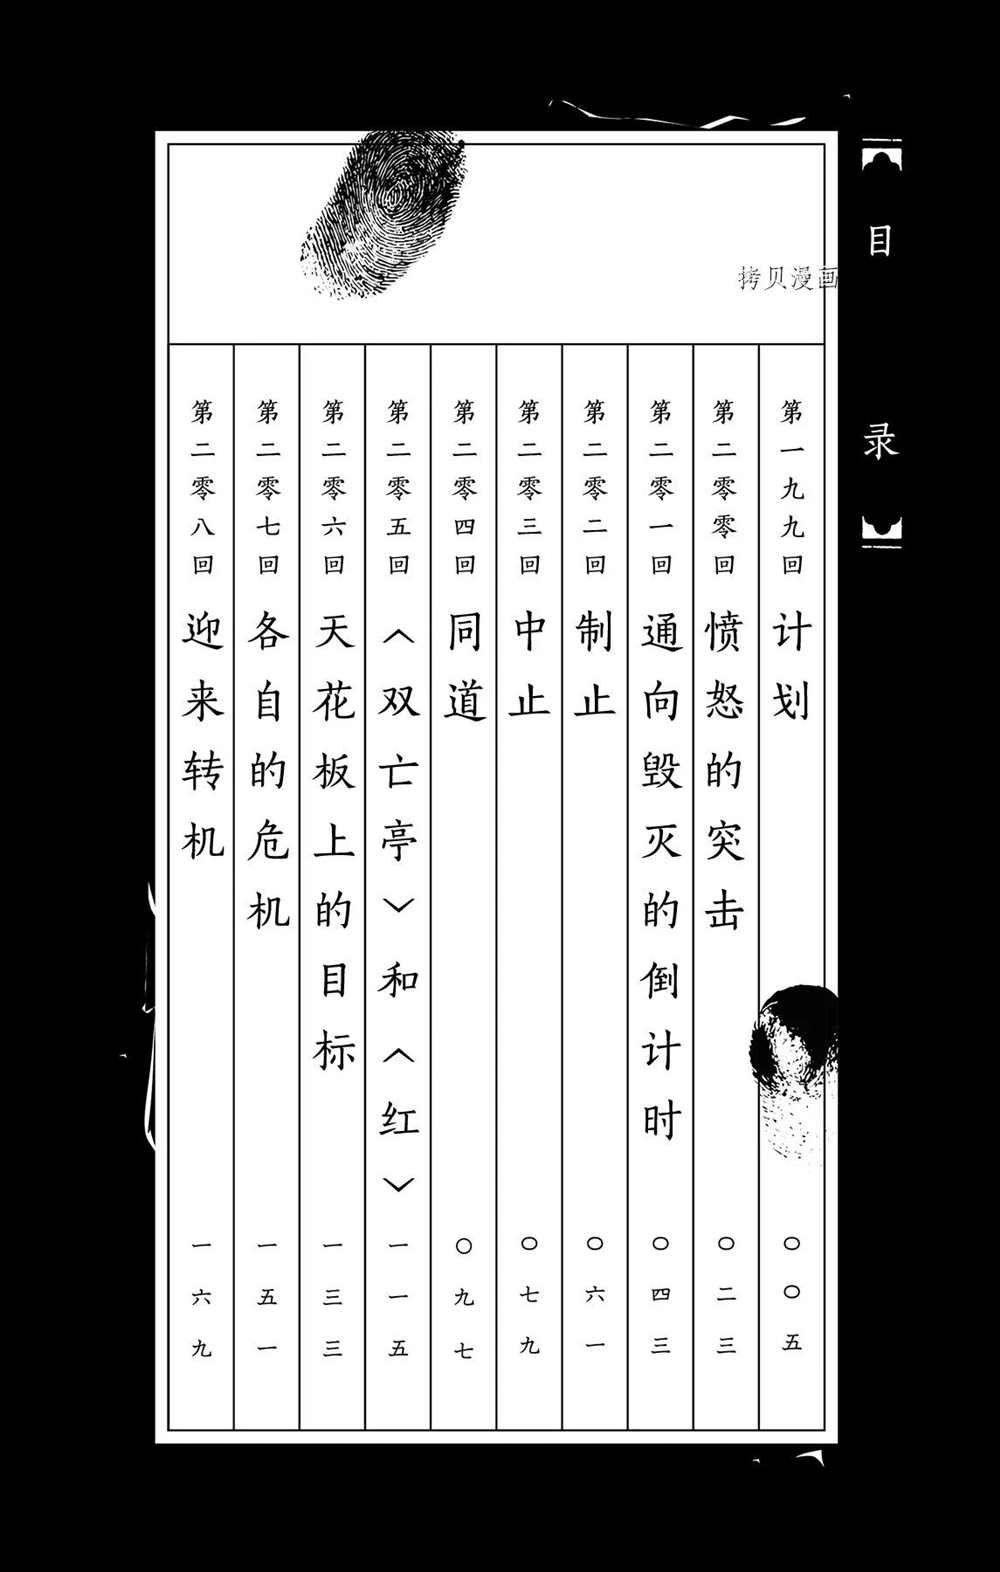 目录
拷贝漫画
第一九九回 计划 〇〇五
第二零零回 愤怒的突击 〇二三
第二零一回 通向毁灭的倒计时 〇四三
第二零二回 制止 〇六一
第二零三回 中止 〇七九
第二零四回 同道 〇九七
第二零五回 〈双亡亭〉和〈红〉 一一五
第二零六回 天花板上的目标 一三三
第二零七回 各自的危机 一五一
第二零八回 迎来转机 一六九